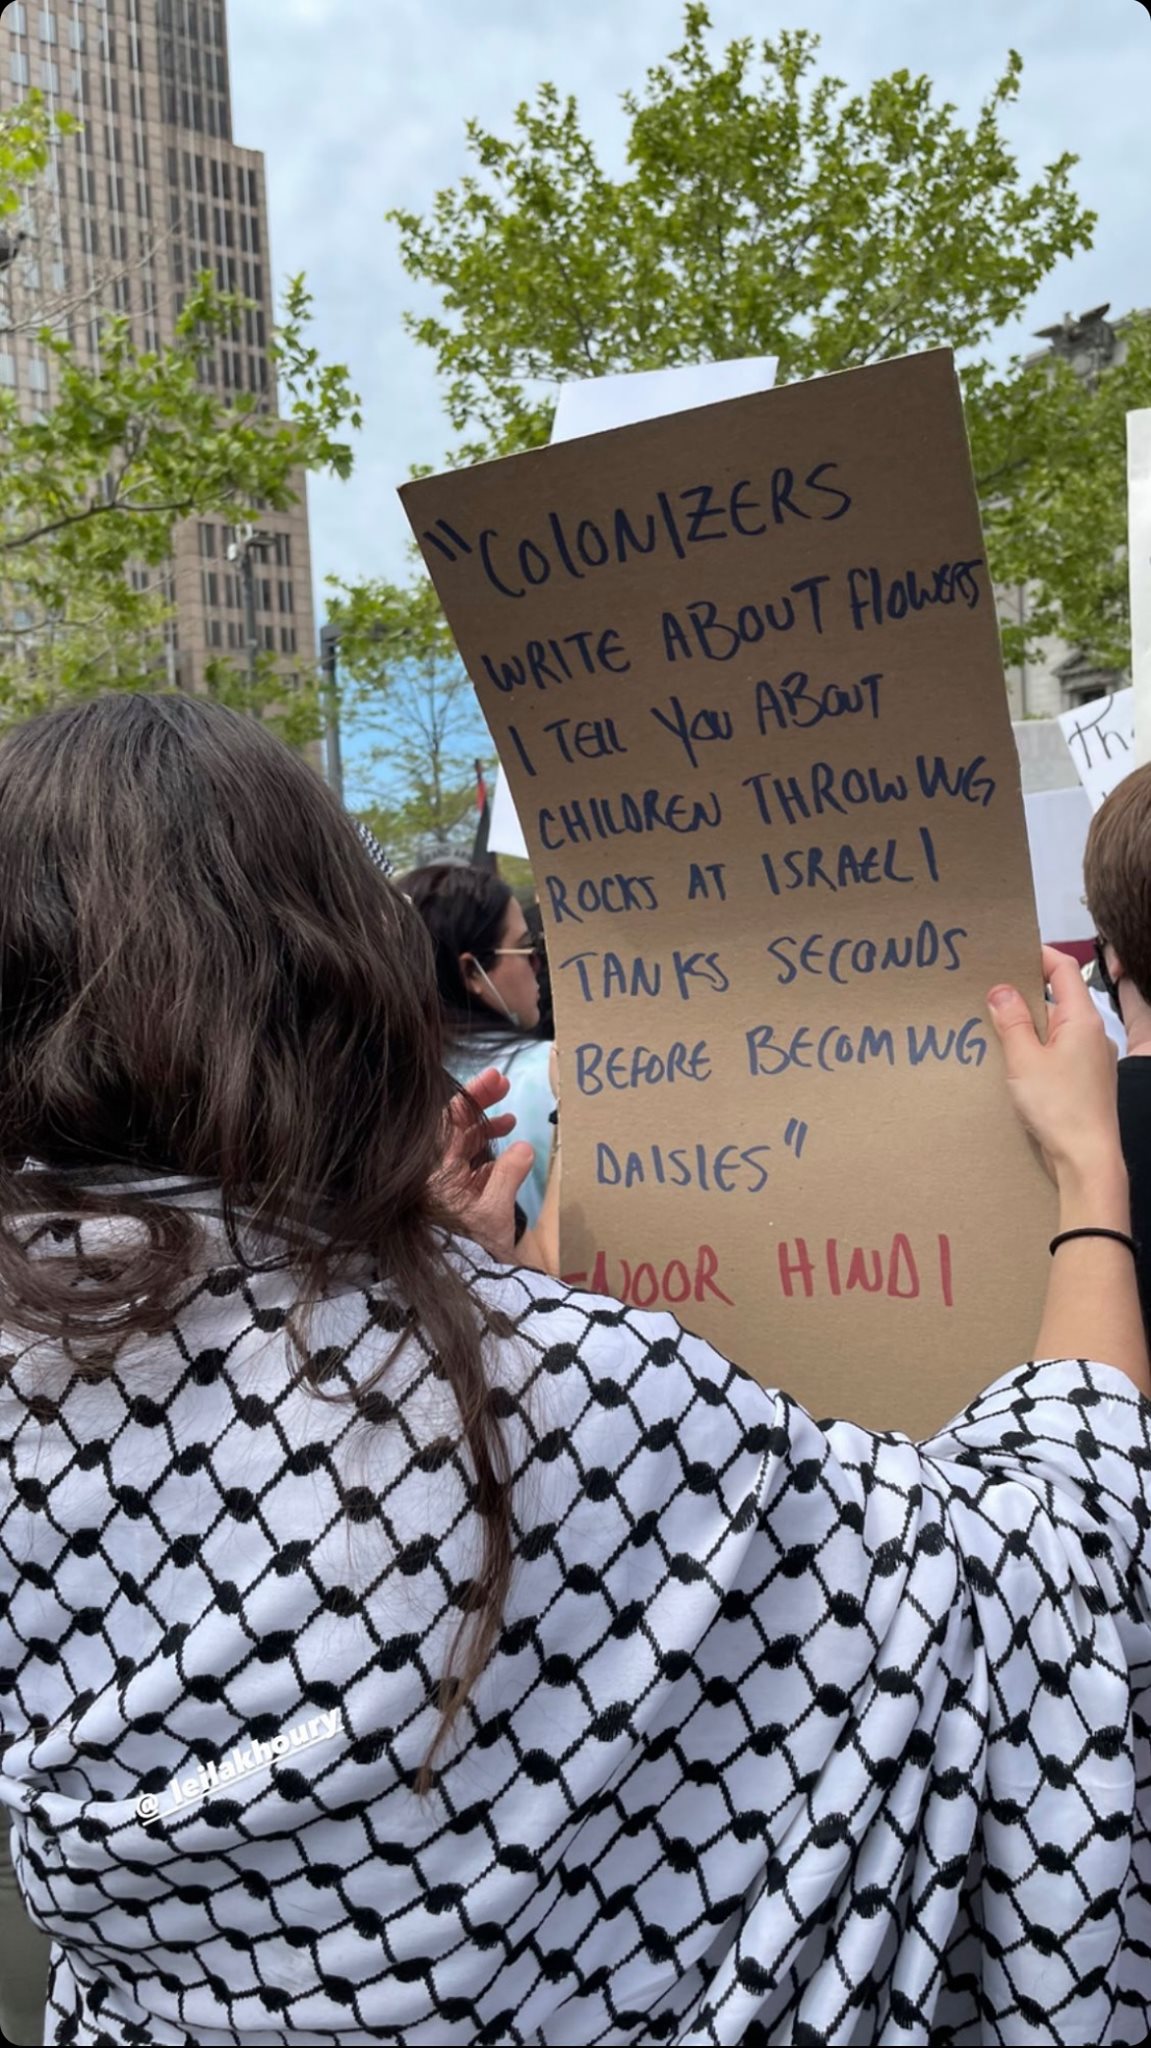 "COLONIZERS
WRITE ABOUT FLOWERS
I TELL YOU ABOUT
CHILDREN THROWING
ROCKS AT ISRAELI
TANKS SECONDS
BEFORE BECOMING
DAISIES"
-NOOR HINDI
@_leilakhoury